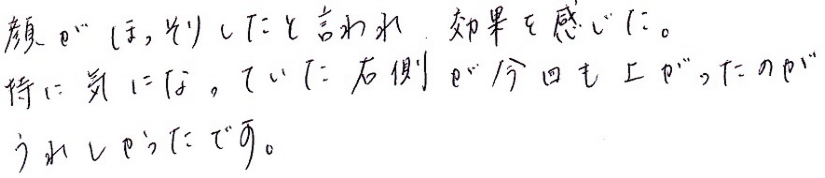 顔がほっそりしたと言われ 効果を感じた。
特に気になっていた右側が今回も上がったのが
うれしかったです。